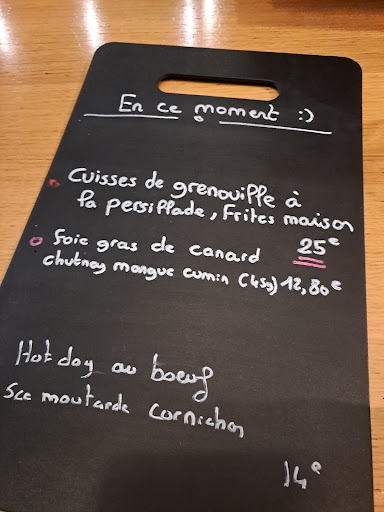 En ce moment :)
Cuisses de grenouille à
la persillade, Frites maison
25€
foie gras de canard
chutney mangue cumin (45g) 12,80€
Hot dog au boeuf
Sce moutarde cornichon
14€